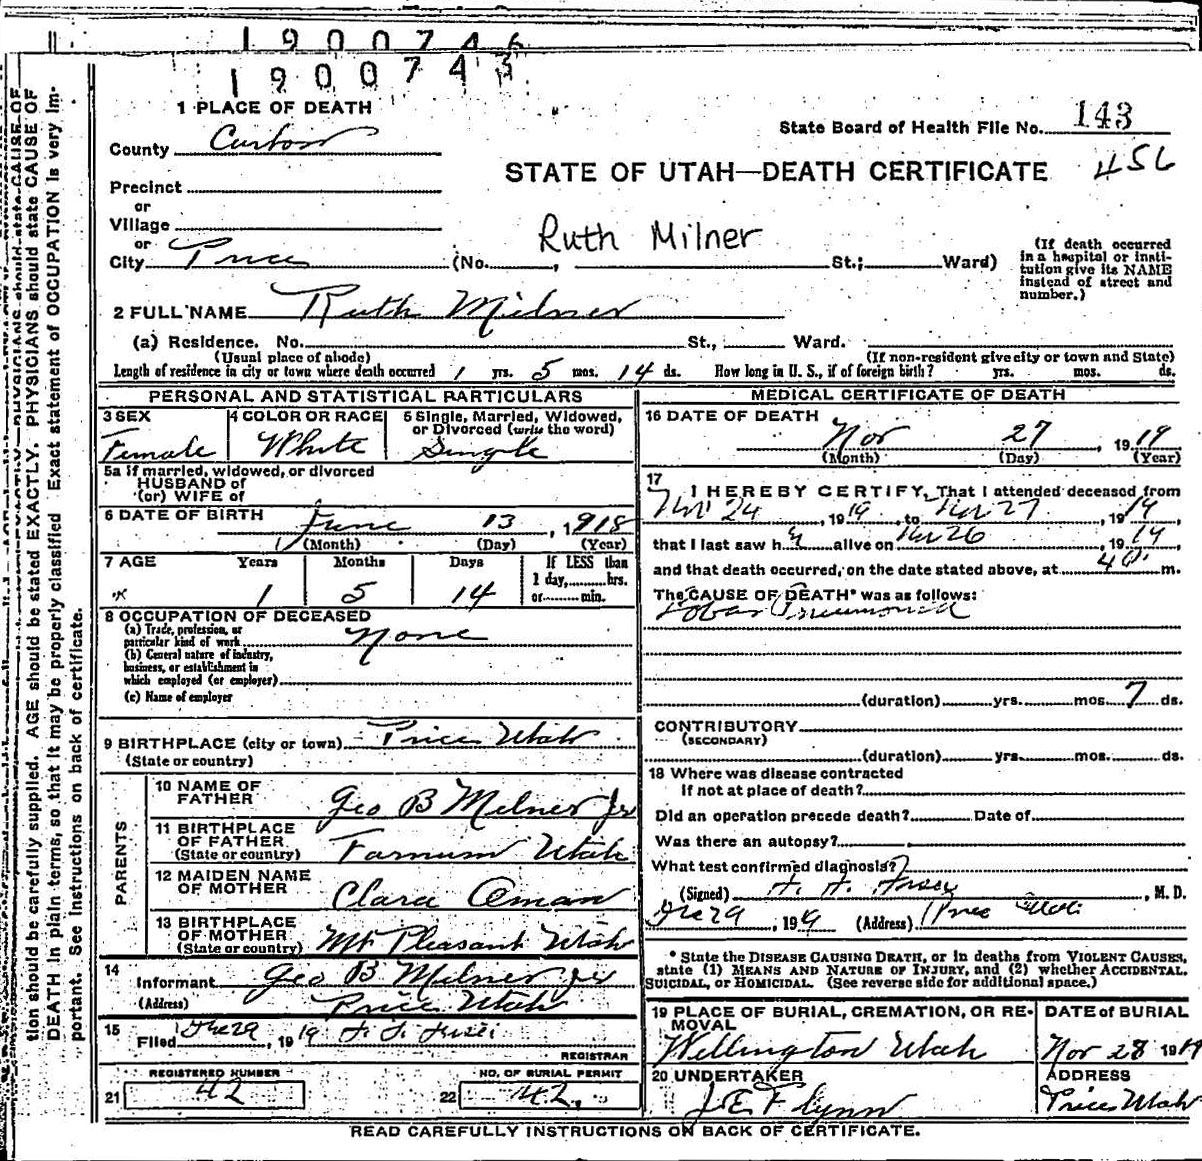 1900746
1900743
1 PLACE OF DEATH
State Board of Health File No. 143
County Carbon
STATE OF UTAH—DEATH CERTIFICATE 456
Precinct
or
Village
or
City Price (No. , St.; Ward)
Ruth Milner
(If death occurred in a hospital or institution give its NAME instead of street and number.)
2 FULL NAME Ruth Milner
(a) Residence. No. St., Ward.
(Usual place of abode) (If non-resident give city or town and State)
Length of residence in city or town where death occurred 1 yrs. 5 mos. 14 ds. How long in U. S., if of foreign birth? yrs. mos. ds.
PERSONAL AND STATISTICAL PARTICULARS
3 SEX
Female
4 COLOR OR RACE
White
5 Single, Married, Widowed,
or Divorced (write the word)
Single
5a If married, widowed, or divorced
HUSBAND of
(or) WIFE of
6 DATE OF BIRTH June 13, 1918
(Month) (Day) (Year)
7 AGE Years Months Days If LESS than
1 day, hrs.
or min.
1 5 14
8 OCCUPATION OF DECEASED
(a) Trade, profession, or
particular kind of work None
(b) General nature of industry,
business, or establishment in
which employed (or employer)
(c) Name of employer
9 BIRTHPLACE (city or town) Price Utah
(State or country)
PARENTS
10 NAME OF
FATHER Geo B Milner Jr
11 BIRTHPLACE
OF FATHER
(State or country) Farnum Utah
12 MAIDEN NAME
OF MOTHER Clara Oman
13 BIRTHPLACE
OF MOTHER
(State or country) Mt Pleasant Utah
14
Informant Geo B Milner Jr
(Address) Price Utah
15
Filed , 1919
REGISTRAR
REGISTERED NUMBER
21 42
NO. OF BURIAL PERMIT
22 42.
MEDICAL CERTIFICATE OF DEATH
16 DATE OF DEATH
Nov 27, 1919
(Month) (Day) (Year)
17
I HEREBY CERTIFY, That I attended deceased from
Nov 24, 1919, to Nov 27, 1919
that I last saw her alive on Nov 26, 1919
and that death occurred, on the date stated above, at 4 a. m.
The CAUSE OF DEATH* was as follows:
Lobar Pneumonia
(duration) yrs. mos. 7 ds.
CONTRIBUTORY
(SECONDARY)
(duration) yrs. mos. ds.
18 Where was disease contracted
If not at place of death?
Did an operation precede death? Date of
Was there an autopsy?
What test confirmed diagnosis?
(Signed) , M. D.
, 1919 (Address) Price Utah
* State the DISEASE CAUSING DEATH, or in deaths from VIOLENT CAUSES,
state (1) MEANS AND NATURE OF INJURY, and (2) whether ACCIDENTAL,
SUICIDAL, or HOMICIDAL. (See reverse side for additional space.)
19 PLACE OF BURIAL, CREMATION, OR RE-
MOVAL
Wellington Utah
DATE of BURIAL
Nov 28 1919
20 UNDERTAKER
J E Flynn
ADDRESS
Price Utah
READ CAREFULLY INSTRUCTIONS ON BACK OF CERTIFICATE.
tion should be carefully supplied. AGE should be stated EXACTLY. PHYSICIANS should state CAUSE OF
DEATH in plain terms, so that it may be properly classified. Exact statement of OCCUPATION is very im-
portant. See instructions on back of certificate.